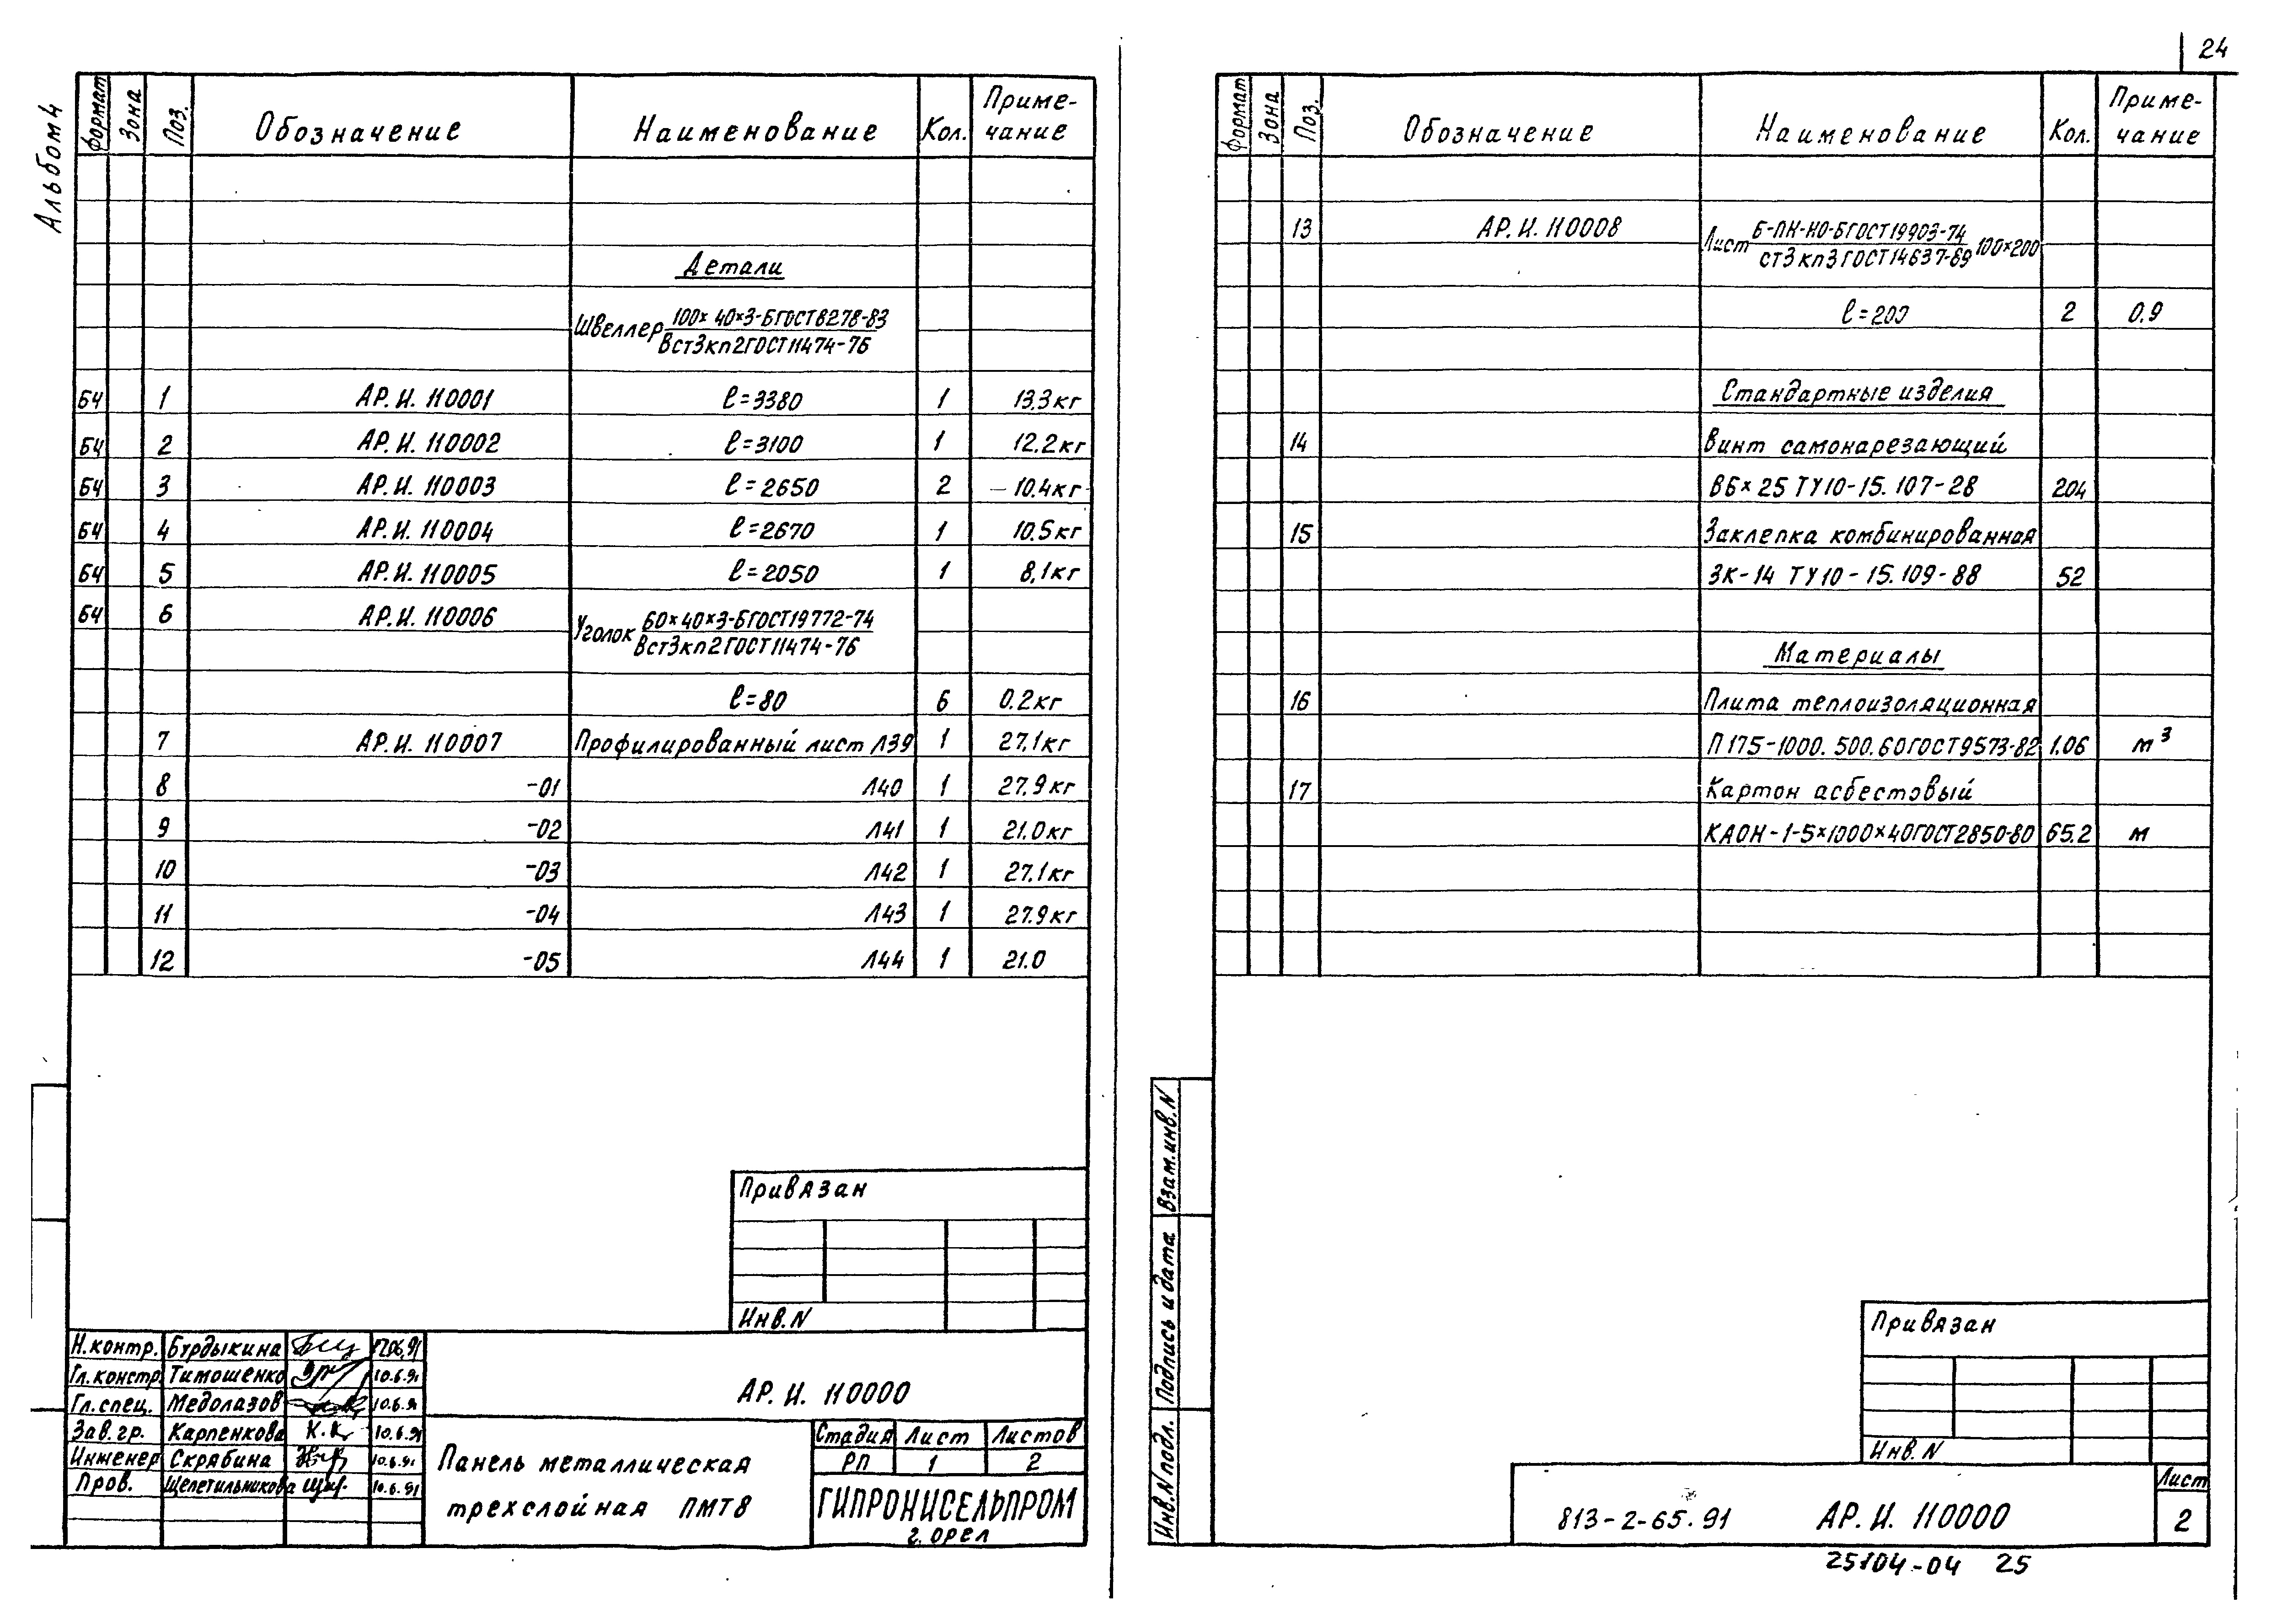 24
Альбом 4
Формат Зона Поз. Обозначение Наименование Кол. Приме-
чание
Детали
Швеллер 100×40×3-БГОСТ8278-83
Вст3кп2ГОСТ11474-76
БЧ 1 АР.И.110001 ℓ=3380 1 13.3кг
БЧ 2 АР.И.110002 ℓ=3100 1 12.2кг
БЧ 3 АР.И.110003 ℓ=2650 2 10.4кг
БЧ 4 АР.И.110004 ℓ=2670 1 10.5кг
БЧ 5 АР.И.110005 ℓ=2050 1 8,1кг
БЧ 6 АР.И.110006 Уголок 60×40×3-БГОСТ19772-74
Вст3кп2ГОСТ11474-76
ℓ=80 6 0.2кг
7 АР.И.110007 Профилированный лист Л39 1 27.1кг
8 -01 Л40 1 27.9кг
9 -02 Л41 1 21.0кг
10 -03 Л42 1 27.1кг
11 -04 Л43 1 27.9кг
12 -05 Л44 1 21.0
Привязан
Инв.N
Н.контр. Бурдыкина 17.06.91
Гл.констр. Тимошенко 10.6.91
Гл.спец. Медолазов 10.6.91
Зав.гр. Карпенкова 10.6.91
Инженер Скрябина 10.6.91
Пров. Щепетильникова 10.6.91
АР.И.110000
Панель металлическая
трехслойная ПМТ8
Стадия Лист Листов
РП 1 2
ГИПРОНИСЕЛЬПРОМ
г.ОРЕЛ
Формат Зона Поз. Обозначение Наименование Кол. Приме-
чание
13 АР.И.110008 Лист Б-ПН-НО-БГОСТ19903-74 100×200
ст3кп3ГОСТ14637-89
ℓ=200 2 0.9
Стандартные изделия
14 Винт самонарезающий
В6×25 ТУ10-15.107-28 204
15 Заклепка комбинированная
ЗК-14 ТУ10-15.109-88 52
Материалы
16 Плита теплоизоляционная
П175-1000.500.60ГОСТ9573-82 1.06 м³
17 Картон асбестовый
КАОН-1-5×1000×40ГОСТ2850-80 65.2 м
Взам.инв.N
Подпись и дата
Инв.N подл.
Привязан
Инв.N
813-2-65.91 АР.И.110000
Лист
2
25104-04 25